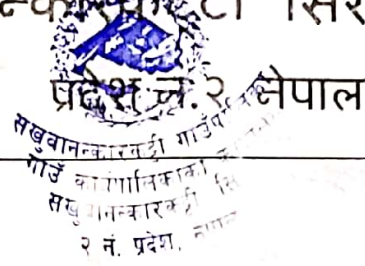 न्कारकट्टी सिर
प्रदेश नं. २ नेपाल
सखुवानन्कारकट्टी गाउँप
गाउँ कार्यपालिकाको
सखुवानन्कारकट्टी सि
२ नं. प्रदेश, नेपाल